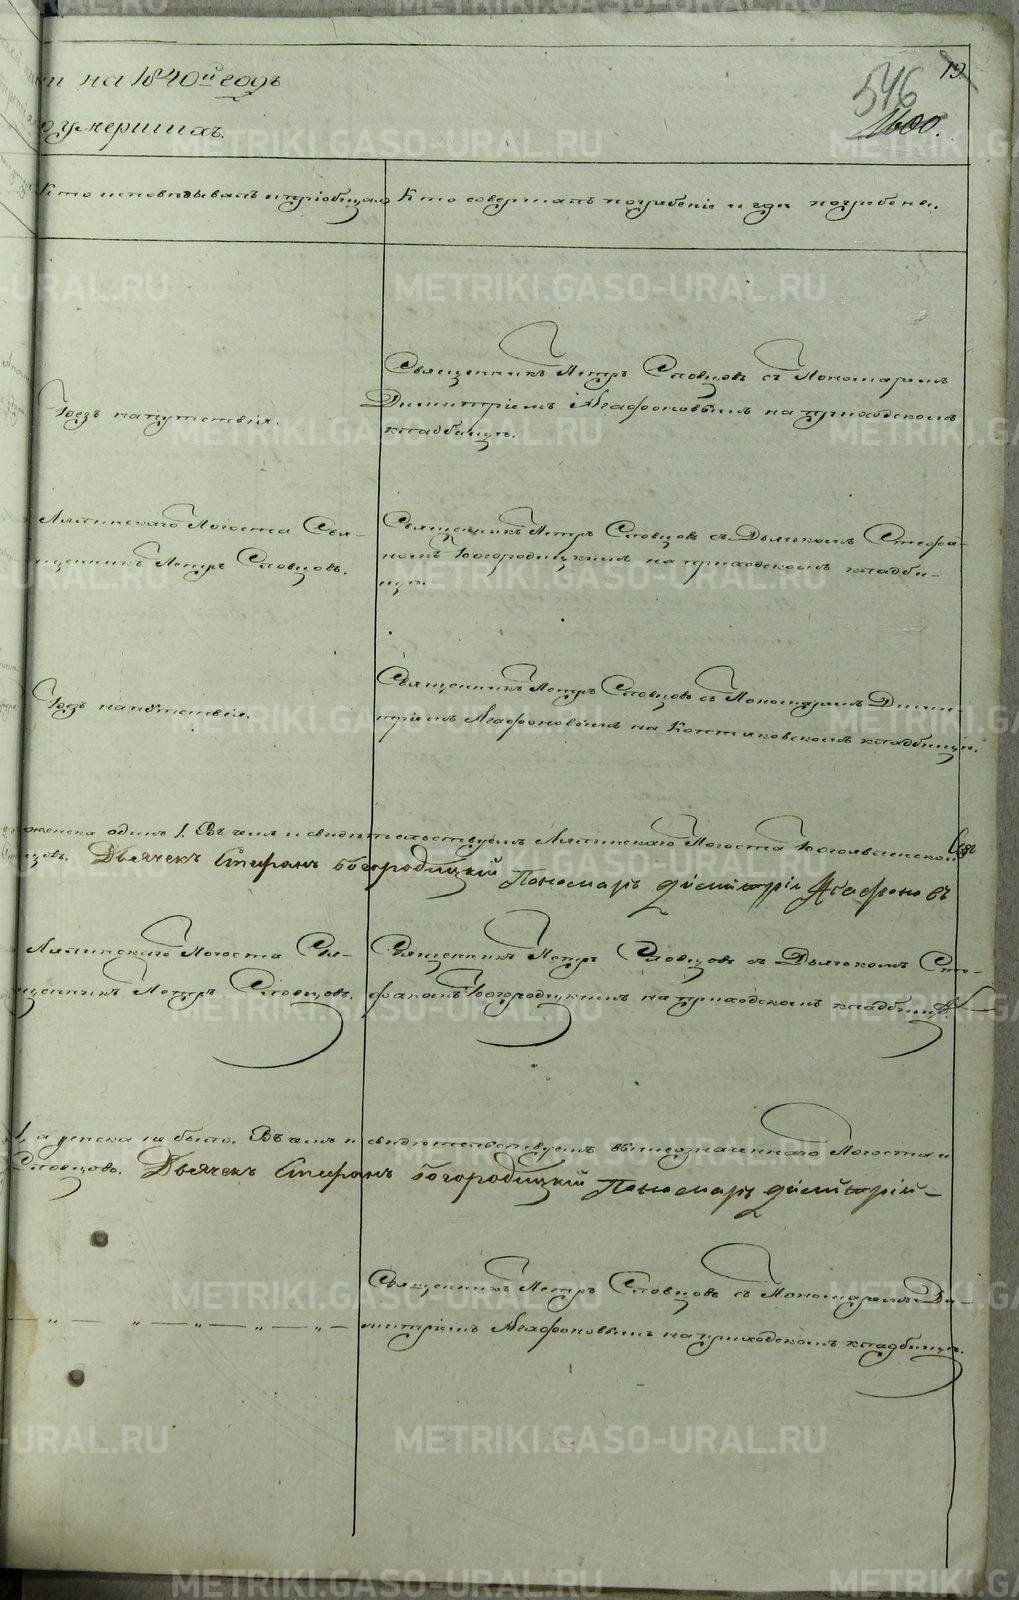 ги на 1840й годъ
19.
546
1600.
о умершихъ.
Кто исповѣдывалъ и пріобщалъ
Кто совершалъ погребеніе и гдѣ погребены.
Безъ напутствія.
Священникъ Петръ Словцовъ съ Пономаремъ
Димитріемъ Агафоновымъ на приходскомъ
кладбищѣ.
Лялинскаго Погоста Свя-
щенникъ Петръ Словцовъ.
Священникъ Петръ Словцовъ съ Дьячкомъ Стефа-
номъ Богородицкимъ на приходскомъ кладби-
щѣ.
Безъ напутствія.
Священникъ Петръ Словцовъ съ Пономаремъ Дими-
тріемъ Агафоновымъ на Коптяковскомъ кладбищѣ.
женска одинъ 1. Въ чемъ и свидѣтельствуемъ Лялинскаго Погоста Богоявленской
цовъ. Дьячекъ Стефанъ Богородицкій Пономарь Димитрій Агафоновъ
Лялинскаго Погоста Свя-
щенникъ Петръ Словцовъ.
Священникъ Петръ Словцовъ съ Дьячкомъ Сте-
фаномъ Богородицкимъ на приходскомъ кладбищѣ.
1, а женска не было. Въ чемъ и свидѣтельствуемъ вышеозначеннаго Погоста
Словцовъ. Дьячекъ Стефанъ Богородицкій Пономарь Димитрій
— „ — „ — „ — „ — „ —
Священникъ Петръ Словцовъ съ Пономаремъ Ди-
митріемъ Агафоновымъ на приходскомъ кладбищѣ.
METRIKI.GASO-URAL.RU